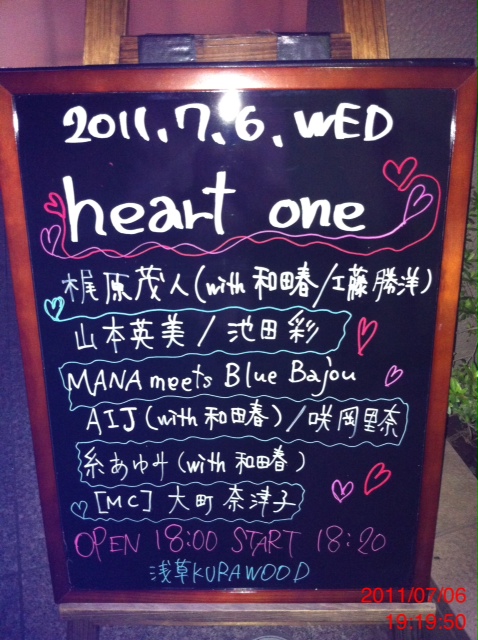 2011.7.6.WED
heart one
梶原茂人(with 和田春/工藤勝洋)
山本英美/池田彩
MANA meets Blue Bajou
AIJ(with 和田春)/咲岡里奈
糸あゆみ(with 和田春)
[MC] 大町奈津子
OPEN 18:00 START 18:20
浅草KURAWOOD
2011/07/06
19:19:50